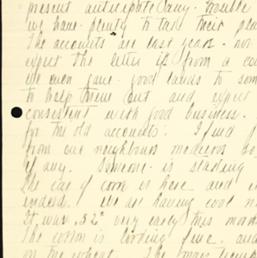 present anticipate any trouble
we have plenty to take their pla
The accounts are last years - nor
expect the letter is from a co
we even gave good lands to som
to help them out and expect
consistent with good business.
for the old accounts. I find
from our neighbors mediocre bo
if any. Someone is stealing
the car of corn is here and
indeed. We are having cool n
It was 52° very early this morn
The cotton is looking fine, and
on the wheat. The